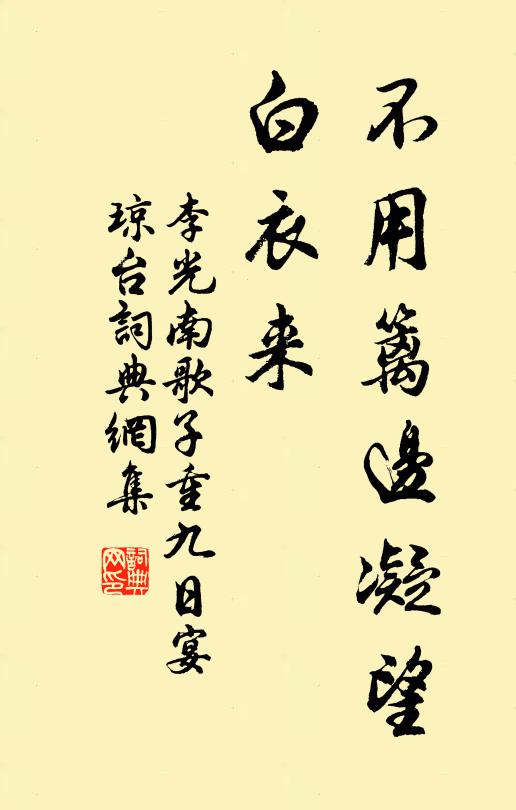 不用籬邊凝望
白衣来
李光南歌子重九日宴
琼台詞典網集
詞典
网印